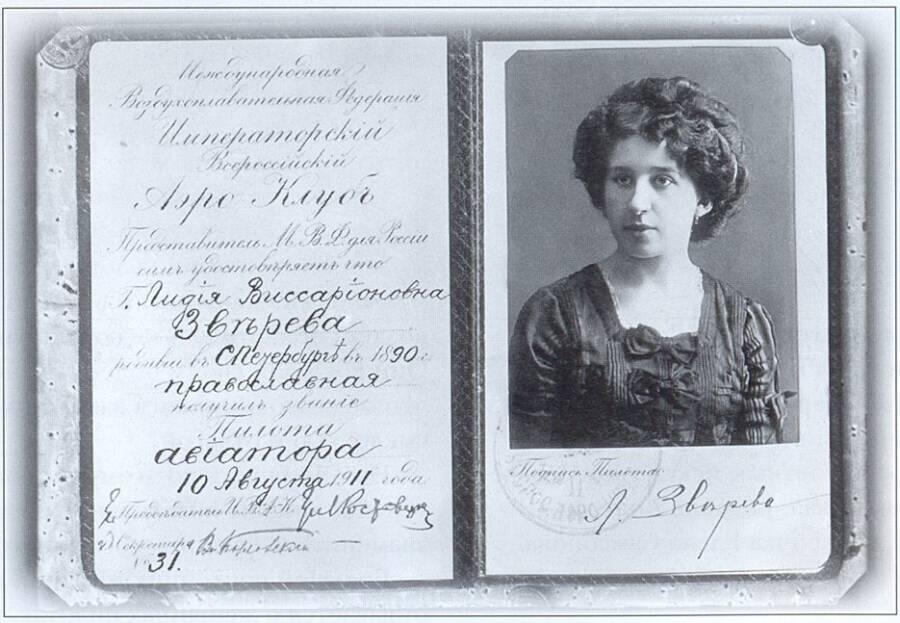 Международная
Воздухоплавательная Федерація
Императорскій
Всероссійскій
Аэро Клубъ
Представитель М. В. Ф. для Россіи
симъ удостовѣряетъ что
Г. Лидія Виссаріоновна
Звѣрева
родивш въ СПетербургѣ въ 1890 г.
православная
получилъ званіе
Пилота
авіатора
10 Августа 1911 года
Предсѣдатель И. В. А. К.
Секретарь
31.
Подпись Пилота:
Л. Звѣрева